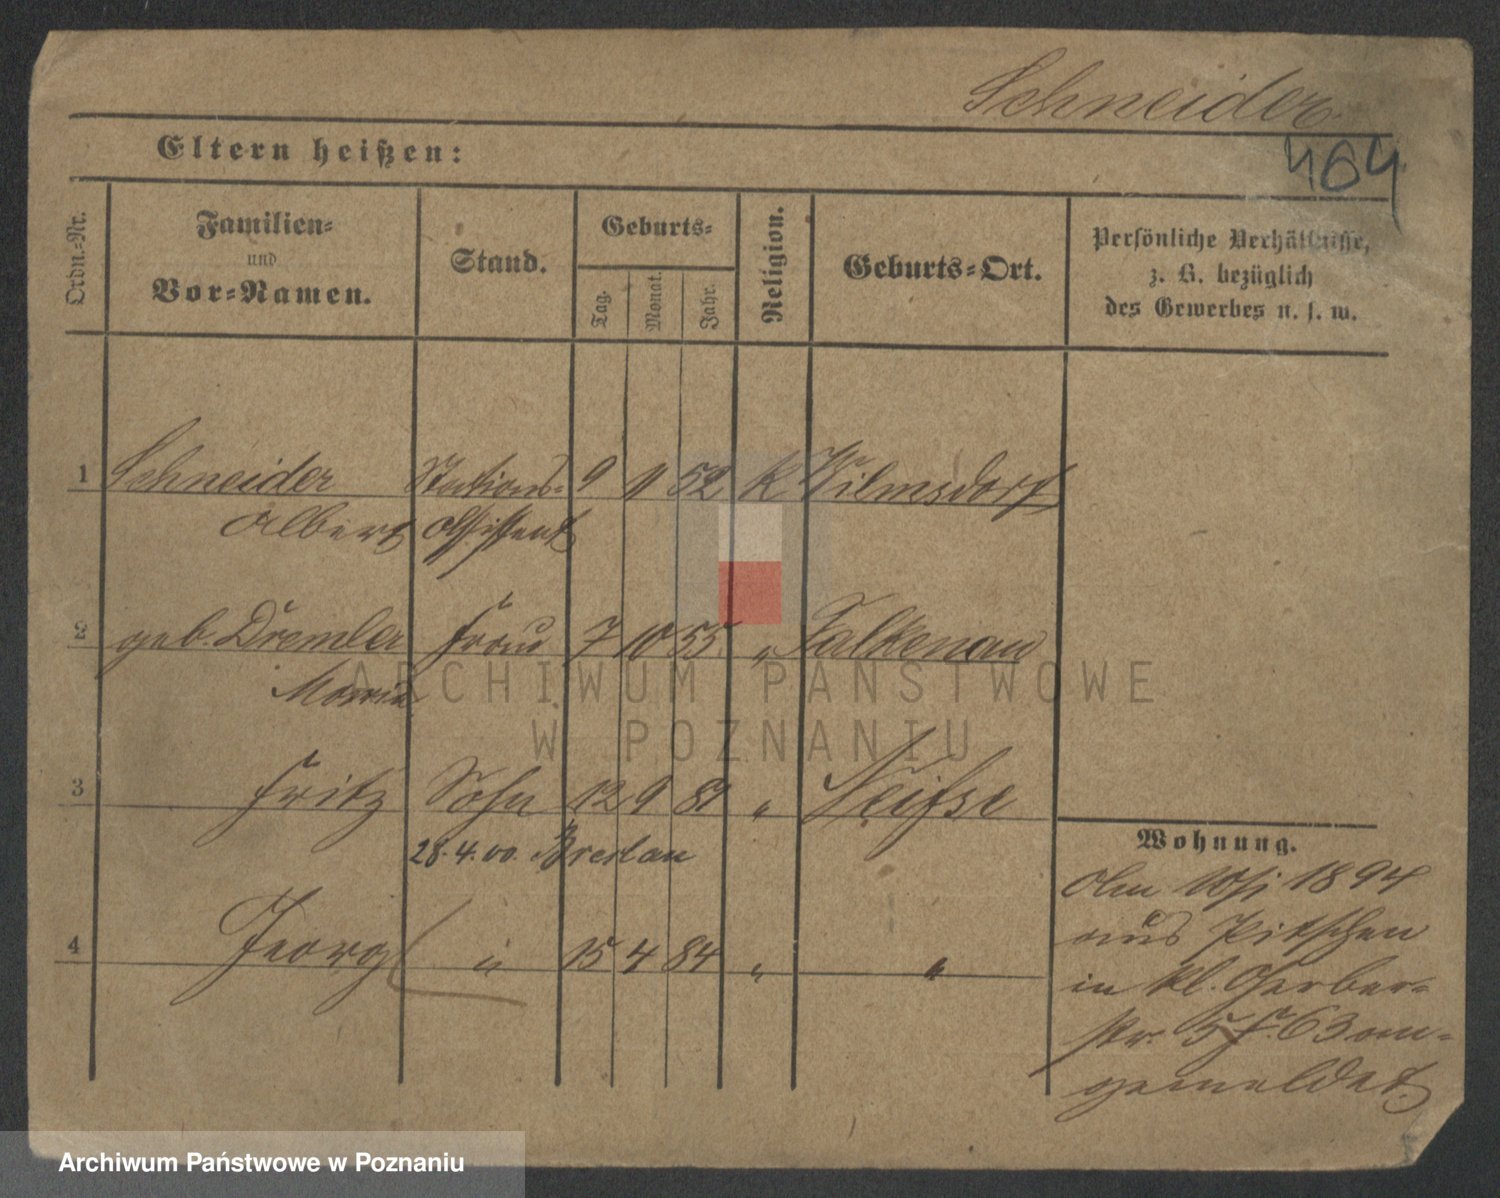 Schneider
464
Eltern heißen:
Ordn.-Nr.
Familien-
und
Vor-Namen.
Stand.
Geburts-
Tag.
Monat.
Jahr.
Religion.
Geburts-Ort.
Persönliche Verhältnisse,
z. B. bezüglich
des Gewerbes u. s. w.
1 Schneider Stations- 9 11 52 K Wilmsdorf
Albert Assistent
2 geb. Dremler Frau 7 10 55 " Falkenau
Maria
3 Fritz Sohn 12 9 81 " Neisse
28.4.00. Breslau
4 Georg " 15 4 84 " "
Wohnung.
1894
aus Pitschen
in kl. Gerber-
str. 5 f. 63 an-
gemeldet.
ARCHIWUM PAŃSTWOWE
W POZNANIU
Archiwum Państwowe w Poznaniu